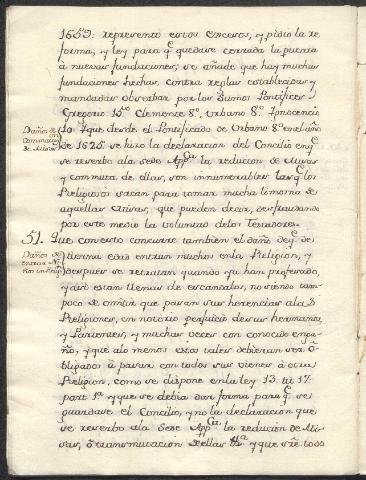 1653: representó estos excesos, y pidió la re
forma, y ley para q̃ quedase cerrada la puerta
á nuevas fundaciones; se añade que hay muchas
fundaciones hechas contra reglas establecidas y
mandadas observar por los Sumos Pontifices
Gregorio 15º Clemente 8º Urbano 8º Ynocencio
Daños de
Conmutacion
de Misas
que desde el Pontificado de Urbano 8º en el año
de 1625 se hizo la declaracion del Concilio en q̃
se reservó á la Sede App.ca la reducion de Misas
y commuta de ellas, son innumerables las q̃ los
Religiosos sacan para tomar mucha limosna de
aquellas Misas, que pueden decir, defraudando
por este medio la voluntad de los Testadores.
51. Que con esto concurre tambien el daño de q̃ de
Daños de
entrar Ni
ños en Relig.
diversa edad entran muchos en la Religion, y
despues se retratan quando ya han profesado,
y asi estan llenas de escandalos, no siendo tam
poco de omitir que pasan sus herencias á las
Religiones, en notorio perjuicio de sus hermanos,
y Parientes, y muchas veces con conocido enga
ño; y que alo menos estos tales debieran ser o
bligados á pasar con todos sus vienes á otra
Religion, como se dispone en la ley 13. tit. 17.
part. 1ª y que se debia dar forma para q̃ se
guardase el Concilio, y no la declaracion que
se reservó ála Sede App.ca la reducion de Mi
sas, ó transmutacion de ellas &.a y que sre todo